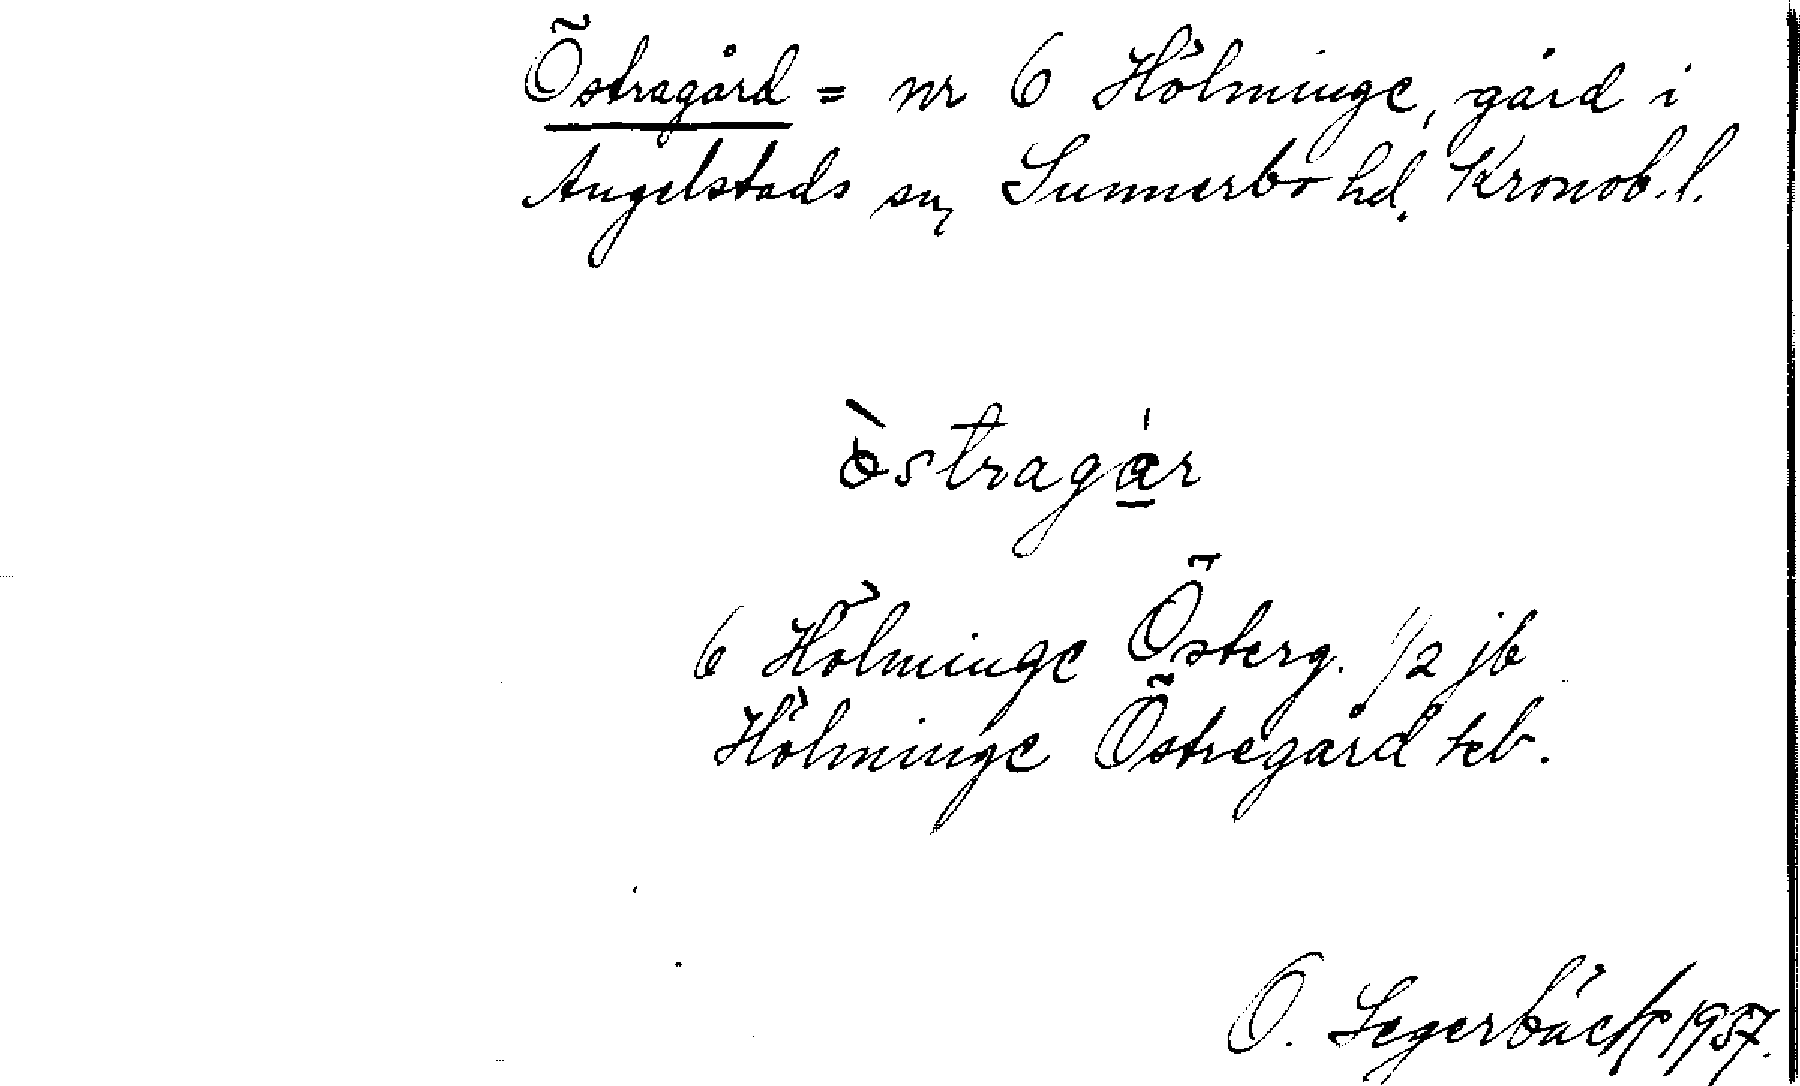 Östragård = nr 6 Hölminge, gård i
Angelstads sn, Sunnerbo hd, Kronob. l.
òstragár
6 Hölminge Österg. 1/2 jb
Hölminge Östregård teb.
O. Segerbäck 1937.